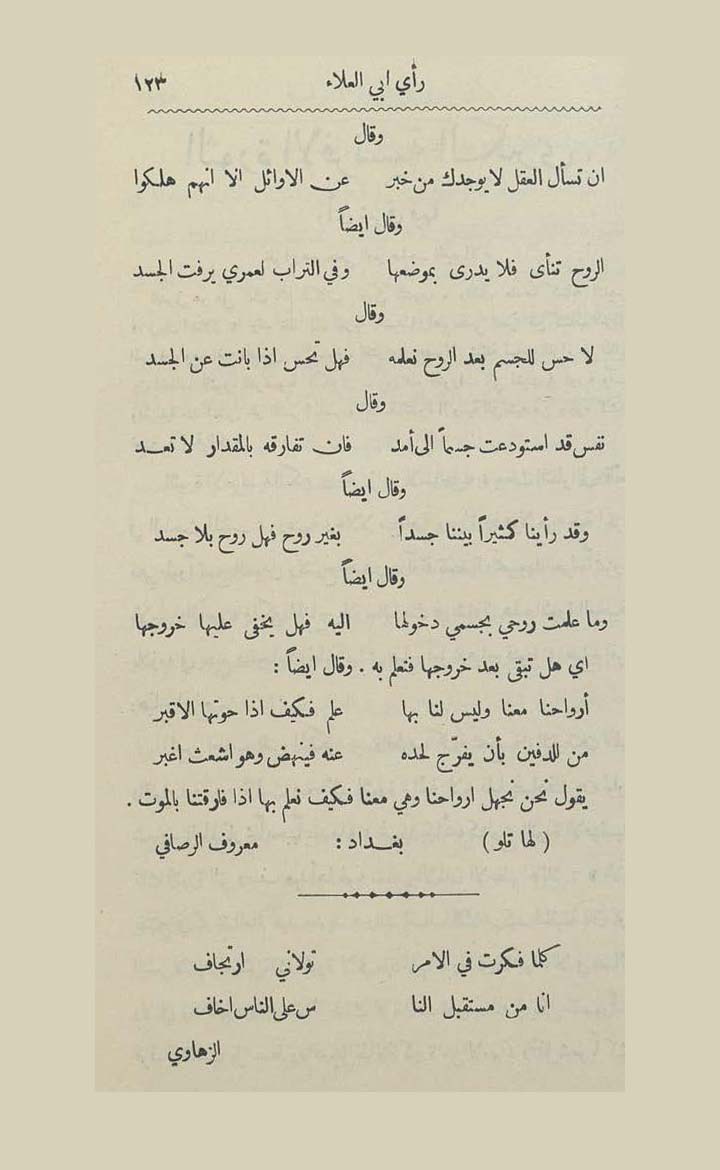 رأي ابي العلاء ١٢٣
وقال
ان تسأل العقل لا يوجدك من خبر عن الاوائل الا انهم هلكوا
وقال ايضاً
الروح تنأى فلا يدرى بموضعها وفي التراب لعمري يرفت الجسد
وقال
لا حس للجسم بعد الروح نعلمه فهل تحس اذا بانت عن الجسد
وقال
نفس قد استودعت جسماً الى أمد فان تفارقه بالمقدار لا تعد
وقال ايضاً
وقد رأينا كثيراً بيننا جسداً بغير روح فهل روح بلا جسد
وقال ايضاً
وما علمت روحي بجسمي دخولها اليه فهل يخفى عليها خروجها
اي هل تبقى بعد خروجها فتعلم به . وقال ايضاً :
أرواحنا معنا وليس لنا بها علم فكيف اذا حوتها الاقبر
من للدفين بأن يفرّج لحده عنه فينهض وهو اشعث اغبر
يقول نحن نجهل ارواحنا وهي معنا فكيف نعلم بها اذا فارقتنا بالموت .
( لها تلو ) بغداد : معروف الرصافي
كلما فكرت في الامر تولاني ارتجاف
انا من مستقبل النا س على الناس اخاف
الزهاوي